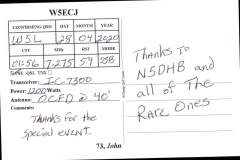 W5ECJ
CONFIRMING QSO DAY MONTH YEAR
W5L 28 04 2020
UTC MHz RST MODE
01:56 7.275 59 SSB
Transceiver: IC-7300
Power: 1200 Watts
Antenna: OCFD @ 40'
Comments:
Thanks for the
special event.
73, John
Thanks to
N5DHB and
all of The
Rare Ones